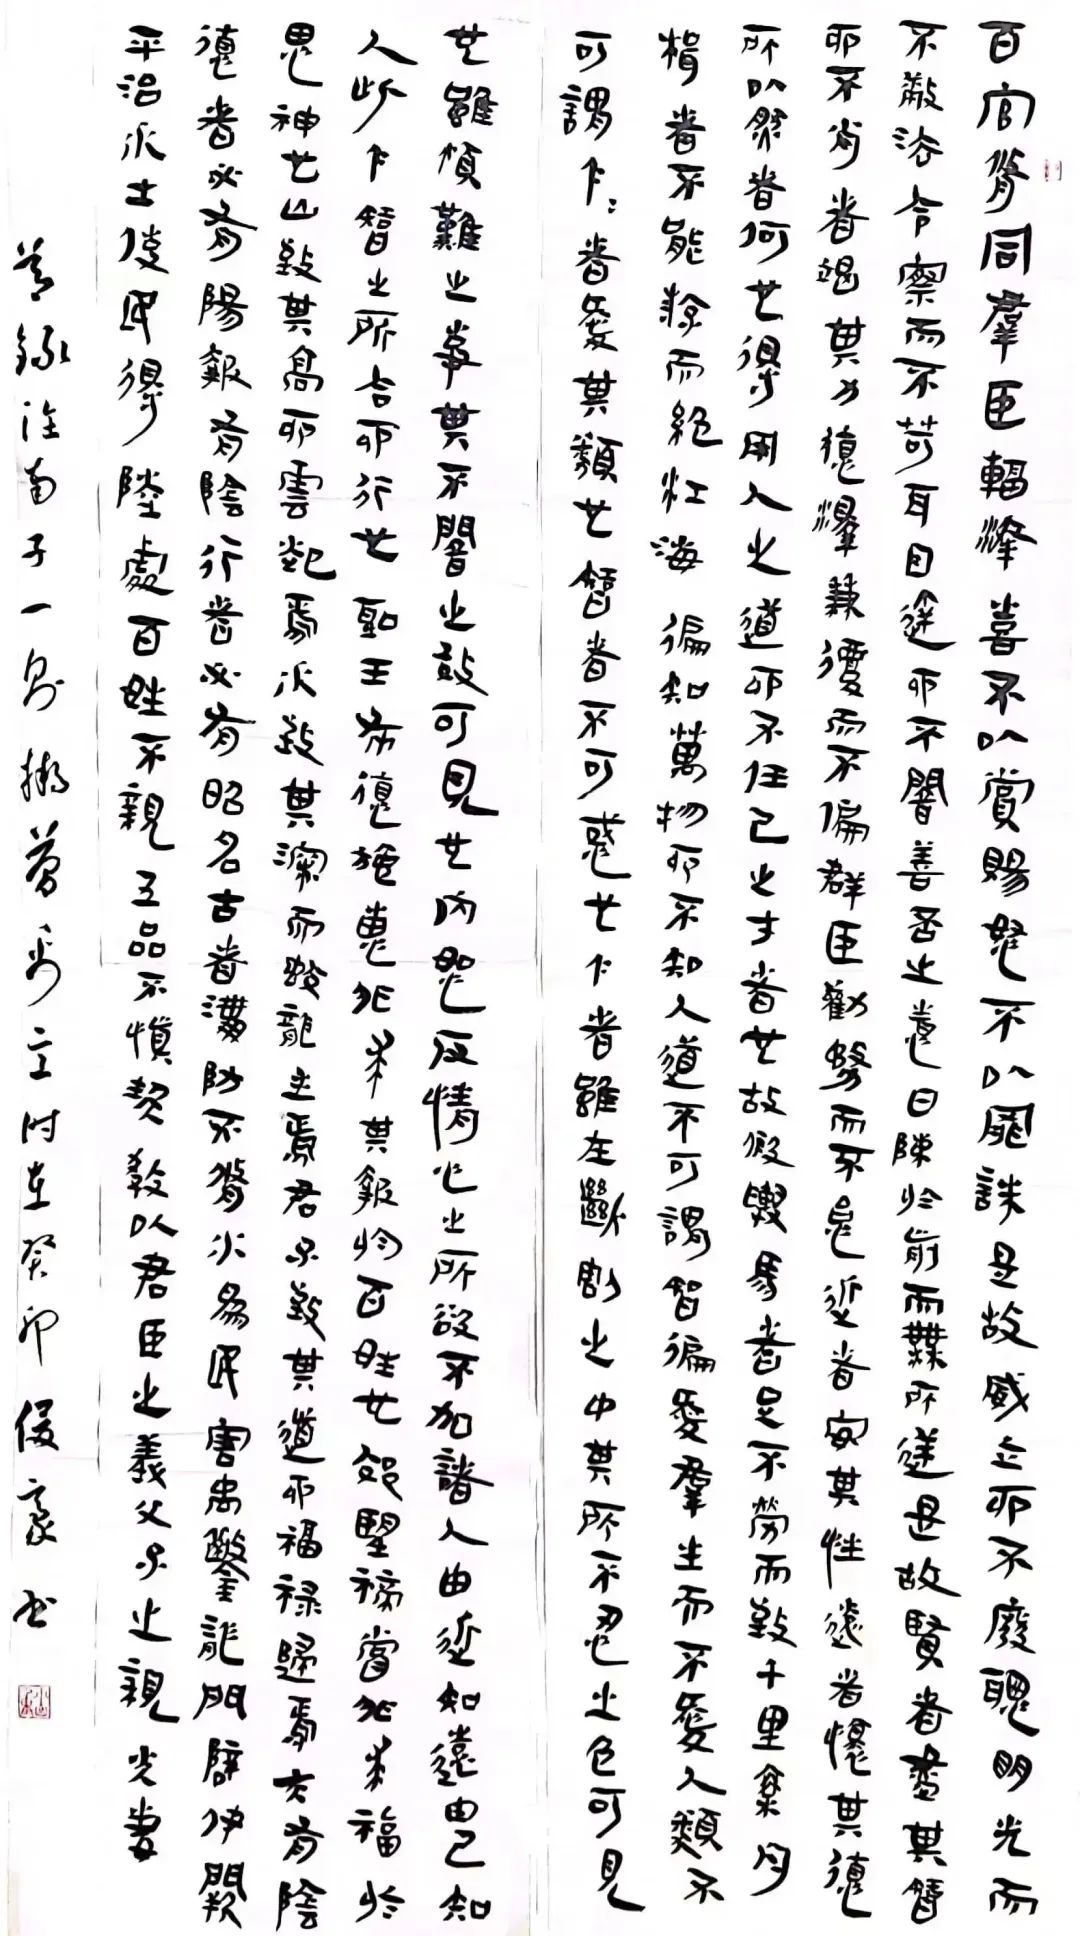 百官脩同羣臣輻湊喜不以賞賜怒不以罪誅是故威立而不廢聰明光而
不蔽法令察而不苛耳目達而不闇善否之情日陳於前而無所逆是故賢者盡其智
而不肖者竭其力德澤兼覆而不偏群臣勸務而不怠近者安其性遠者懷其德
所以然者何也得用人之道而不任己之才者也故假輿馬者足不勞而致千里乘舟
楫者不能游而絕江海 徧知萬物而不知人道不可謂智徧愛羣生而不愛人類不
可謂仁仁者愛其類也智者不可惑也仁者雖在斷割之中其所不忍之色可見
也雖煩難之事其不闇之效可見也內恕反情心之所欲不加諸人由近知遠由己知
人此仁智之所合而行也 聖王布德施惠非求其報於百姓也郊望禘嘗非求福於
鬼神也山致其高而雲起焉水致其深而蛟龍生焉君子致其道而福祿歸焉夫有陰
德者必有陽報有陰行者必有昭名古者溝防不脩水為民害禹鑿龍門辟伊闕
平治水土使民得陸處百姓不親五品不慎契教以君臣之義父子之親夫妻
節錄淮南子一則 時在癸卯 書